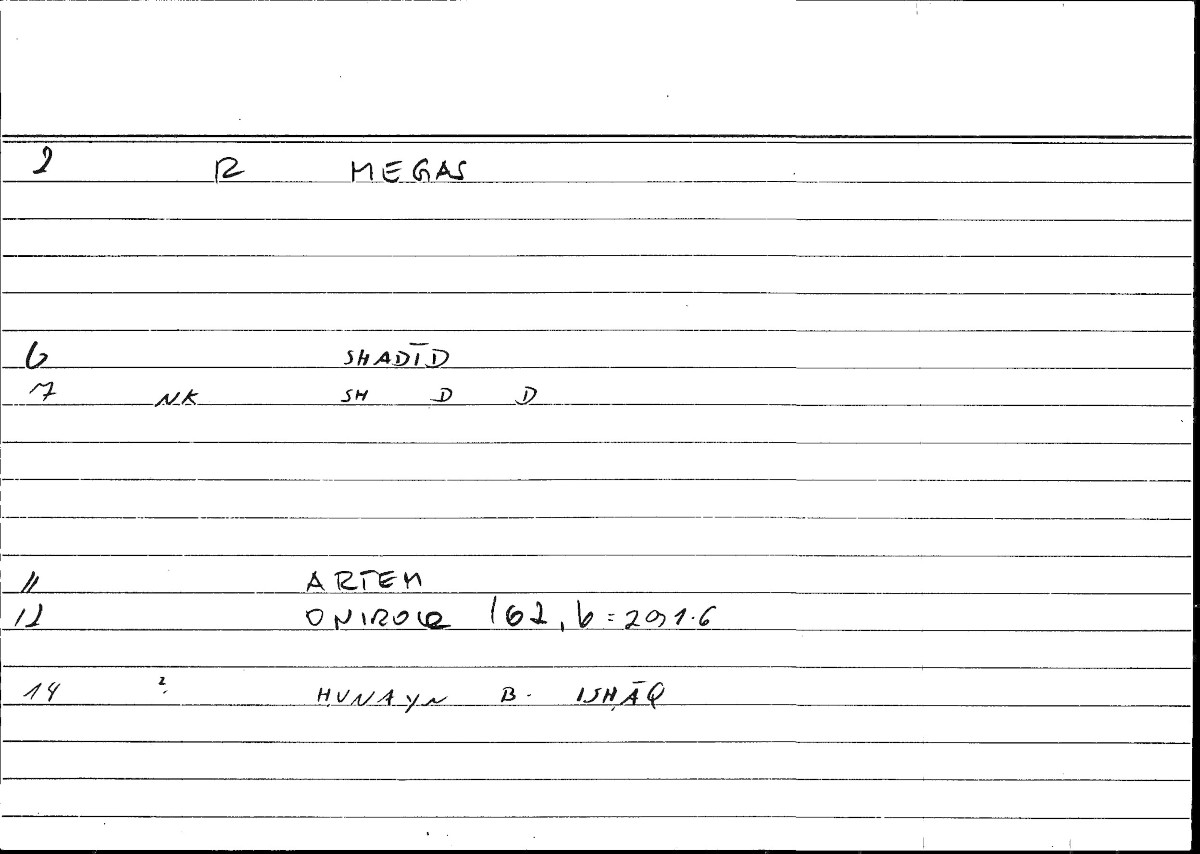 2 R MEGAS
6 SHADĪD
7 NK SH D D
11 ARTEM
12 ONIROCR 162, 6 = 20,1.6
14 ? ḤUNAYN B. ISḤĀQ